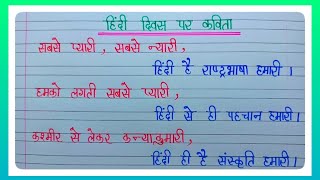 हिंदी दिवस पर कविता
सबसे प्यारी , सबसे न्यारी ,
हिंदी है राष्ट्रभाषा हमारी ।
हमको लगती सबसे प्यारी ,
हिंदी से ही पहचान हमारी ।
कश्मीर से लेकर कन्याकुमारी ,
हिंदी ही है संस्कृति हमारी ।